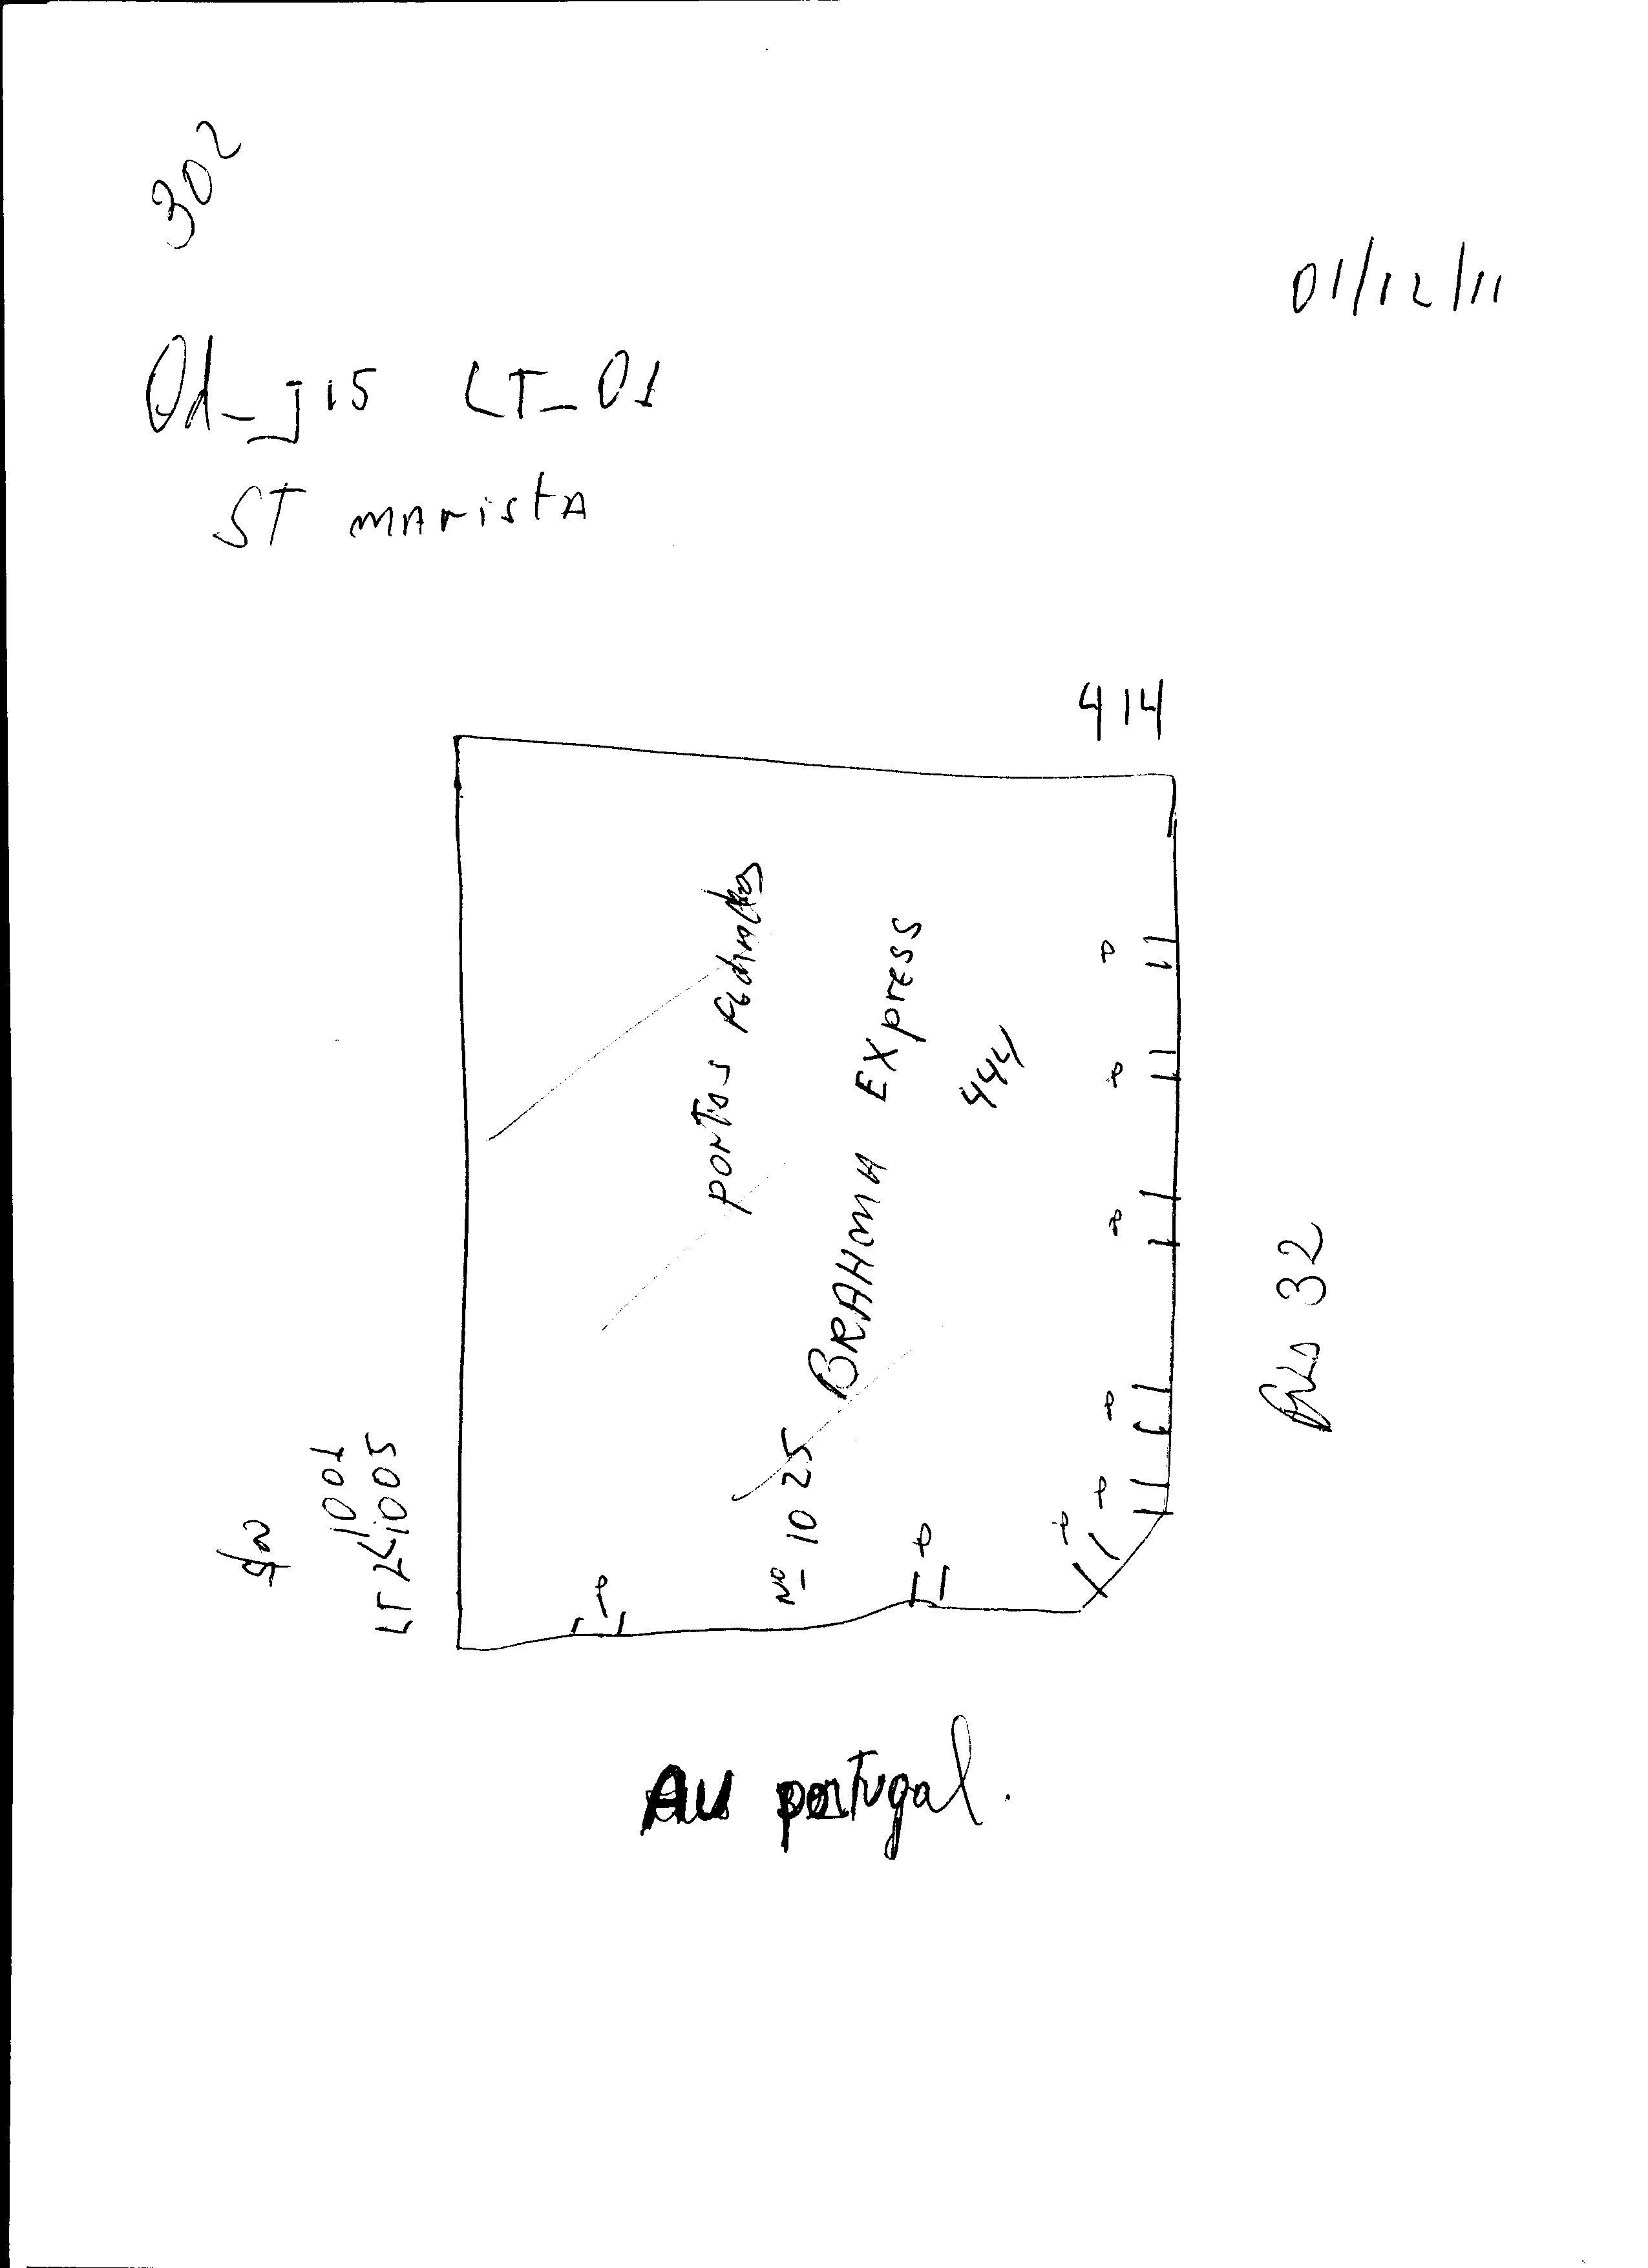 302
01/12/11
Qd_J15 LT_01
ST MARistA
414
portas Fechadas
BRAHMA EXpress
444
Nº 1025
P
P
P
P
P
P
P
P
1001
LT 2 1005
Rua 32
AV portugal.